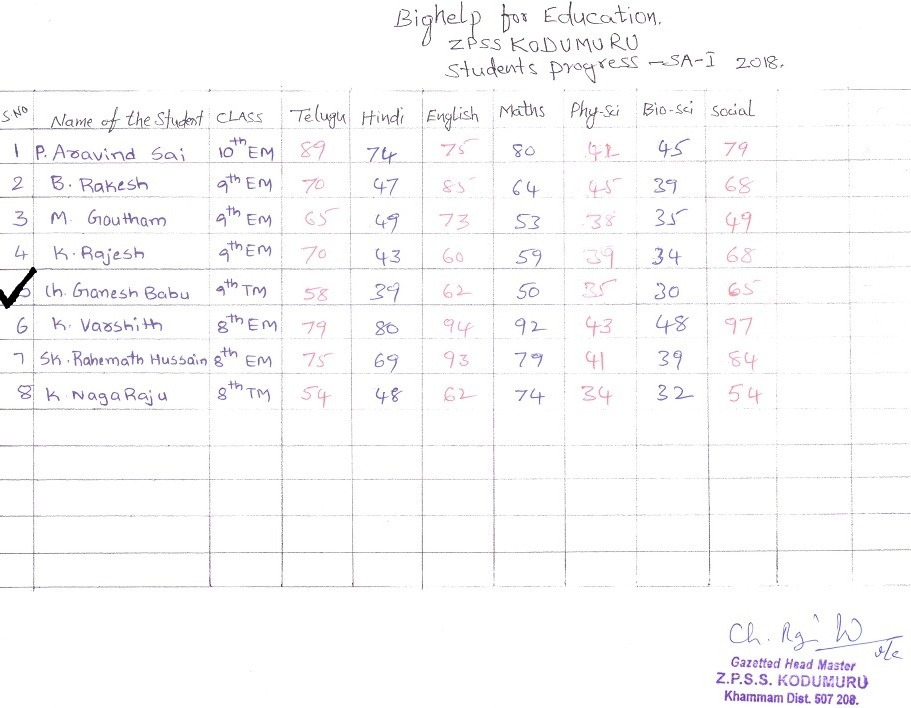 Bighelp for Education.
ZPSS KODUMURU
Students Progress - SA-I 2018.
S.NO Name of the Student CLASS Telugu Hindi English Maths Phy-sci Bio-sci Social
1 P. Aravind Sai 10th EM 89 74 75 80 42 45 79
2 B. Rakesh 9th EM 70 47 85 64 45 39 68
3 M. Goutham 9th EM 65 49 73 53 38 35 49
4 K. Rajesh 9th EM 70 43 60 59 39 34 68
Ch. Ganesh Babu 9th TM 58 39 62 50 35 30 65
6 K. Varshith 8th EM 79 80 94 92 43 48 97
7 SK. Rahemath Hussain 8th EM 75 69 93 79 41 39 84
8 K. NagaRaju 8th TM 54 48 62 74 34 32 54
Ch.
Gazetted Head Master
Z.P.S.S. KODUMURU
Khammam Dist. 507 208.